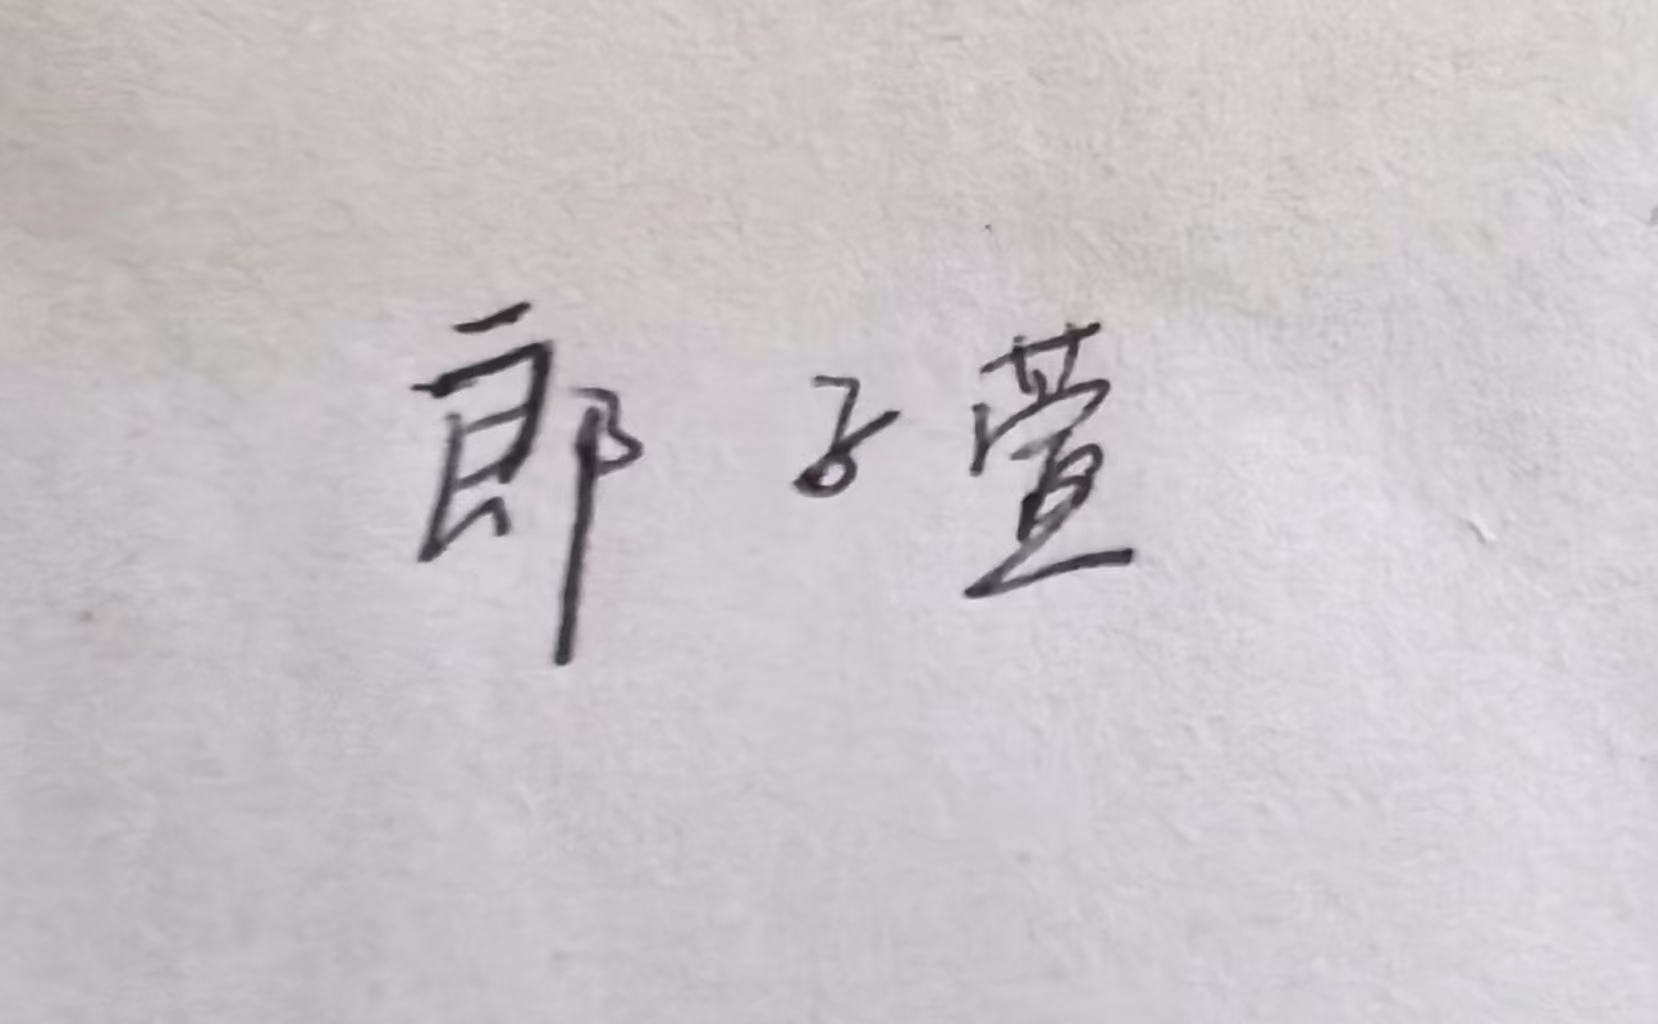 郎子萱